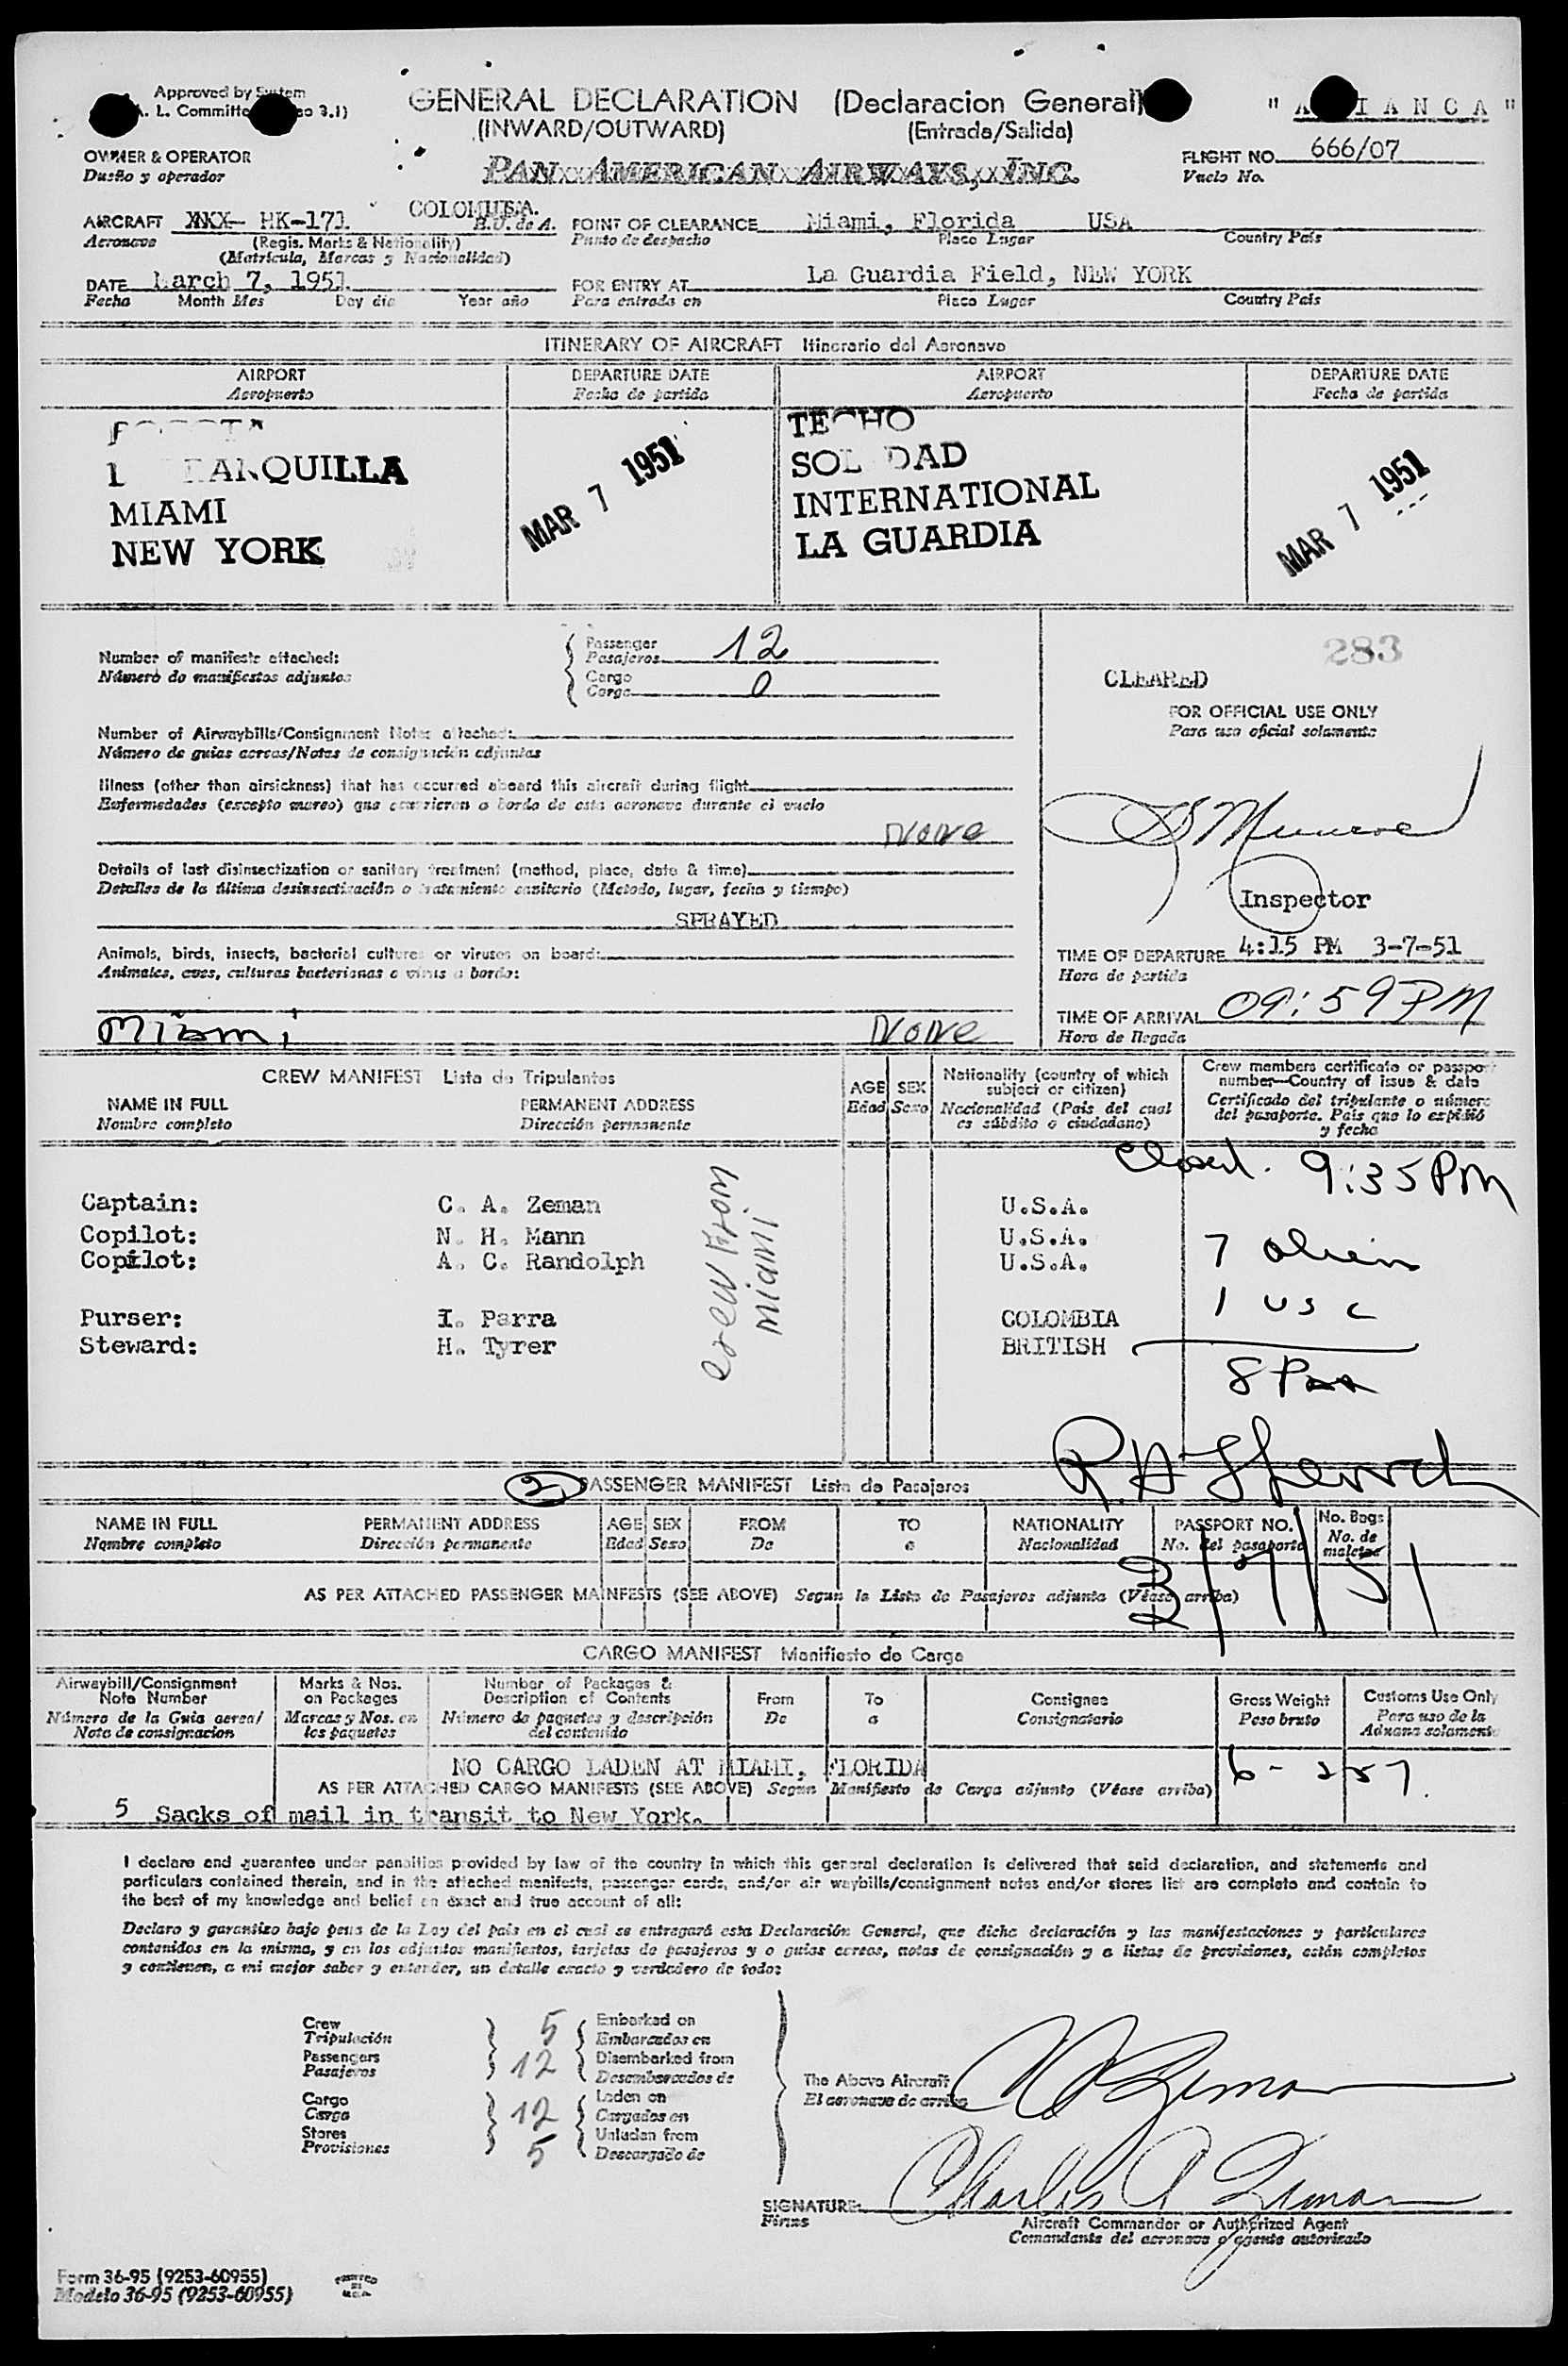 Approved by System
GENERAL DECLARATION (Declaracion General)
(INWARD/OUTWARD) (Entrada/Salida)
OWNER & OPERATOR
Dueño y operador
PAN AMERICAN AIRWAYS, INC.
FLIGHT NO. 666/07
Vuelo No.
AIRCRAFT XXX- HK-171
Aeronave
(Regis. Marks & Nationality)
(Matrícula, Marcas y Nacionalidad)
POINT OF CLEARANCE Miami, Florida USA
Punto de despacho Place Lugar Country País
DATE March 7, 1951
Fecha Month Mes Day día Year año
FOR ENTRY AT La Guardia Field, NEW YORK
Para entrada en Place Lugar Country País
ITINERARY OF AIRCRAFT Itinerario del Aeronave
AIRPORT DEPARTURE DATE AIRPORT DEPARTURE DATE
Aeropuerto Fecha de partida Aeropuerto Fecha de partida
MIAMI
NEW YORK
MAR 7 1951
INTERNATIONAL
LA GUARDIA
MAR 7 1951
Number of manifests attached:
Número de manifiestos adjuntos
Passenger
Pasajeros 12
Cargo
Carga 0
283
CLEARED
FOR OFFICIAL USE ONLY
Para uso oficial solamente
Number of Airwaybills/Consignment Notes attached:
Número de guias aereas/Notas de consignación adjuntas
Illness (other than airsickness) that has occurred aboard this aircraft during flight
Enfermedades (excepto mareo) que ocurrieron a bordo de esta aeronave durante el vuelo
None
Details of last disinsectization or sanitary treatment (method, place, date & time)
Detalles de la última desinsectización o tratamiento sanitario (Metodo, lugar, fecha y tiempo)
SPRAYED
Inspector
Animals, birds, insects, bacterial cultures or viruses on board:
Animales, aves, culturas bacterianas o virus a bordo:
Miami None
TIME OF DEPARTURE 4:15 PM 3-7-51
Hora de partida
TIME OF ARRIVAL 09:59 PM
Hora de llegada
CREW MANIFEST Lista de Tripulantes
NAME IN FULL PERMANENT ADDRESS
Nombre completo Dirección permanente
AGE SEX
Edad Sexo
Nationality (country of which
subject or citizen)
Nacionalidad (País del cual
es súbdito o ciudadano)
Crew members certificate or passport
number—Country of issue & date
Certificado del tripulante o número
del pasaporte. País que lo expidió
y fecha
Closed. 9:35 PM
Captain: C. A. Zeman U.S.A.
Copilot: N. H. Mann U.S.A.
Copilot: A. C. Randolph U.S.A.
Purser: I. Parra COLOMBIA
Steward: H. Tyrer BRITISH
Crew From
Miami
7 alien
1 USC
8 Pax
2 PASSENGER MANIFEST Lista de Pasajeros
NAME IN FULL PERMANENT ADDRESS AGE SEX FROM TO NATIONALITY PASSPORT NO. No. Bags
Nombre completo Dirección permanente Edad Sexo De a Nacionalidad No. del pasaporte No. de
maletas
3/7/51
AS PER ATTACHED PASSENGER MAINFESTS (SEE ABOVE) Segun la Lista de Pasajeros adjunta (Véase arriba)
CARGO MANIFEST Manifiesto de Carga
Airwaybill/Consignment
Note Number
Número de la Guia aerea/
Nota de consignacion
Marks & Nos.
on Packages
Marcas y Nos. en
los paquetes
Number of Packages &
Description of Contents
Número de paquetes y descripción
del contenido
From
De
To
a
Consignee
Consignatario
Gross Weight
Peso bruto
Customs Use Only
Para uso de la
Aduana solamente
NO CARGO LADEN AT MIAMI, FLORIDA
AS PER ATTACHED CARGO MANIFESTS (SEE ABOVE) Segun Manifiesto de Carga adjunto (Véase arriba)
5 Sacks of mail in transit to New York.
I declare and guarantee under penalties provided by law of the country in which this general declaration is delivered that said declaration, and statements and
particulars contained therein, and in the attached manifests, passenger cards, and/or air waybills/consignment notes and/or stores list are complete and contain to
the best of my knowledge and belief an exact and true account of all:
Declaro y garantizo bajo pena de la Ley del país en el cual se entregará esta Declaración General, que dicha declaración y las manifestaciones y particulares
contenidos en la misma, y en los adjuntos manifiestos, tarjetas de pasajeros y o guias aereas, notas de consignación y o listas de provisiones, están completos
y contienen, a mi mejor saber y entender, un detalle exacto y verdadero de todo:
Crew
Tripulación 5
Passengers
Pasajeros 12
Cargo
Carga 12
Stores
Provisiones 5
Embarked on
Embarcados en
Disembarked from
Desembarcados de
Laden on
Cargados en
Unladen from
Descargado de
The Above Aircraft
El aeronave de arriba
C A Zeman
SIGNATURE: Charles A Zeman
Firmas
Aircraft Commander or Authorized Agent
Comandante del aeronave o agente autorizado
Form 36-95 (9253-60955)
Modelo 36-95 (9253-60955)
PRINTED
IN
U.S.A.